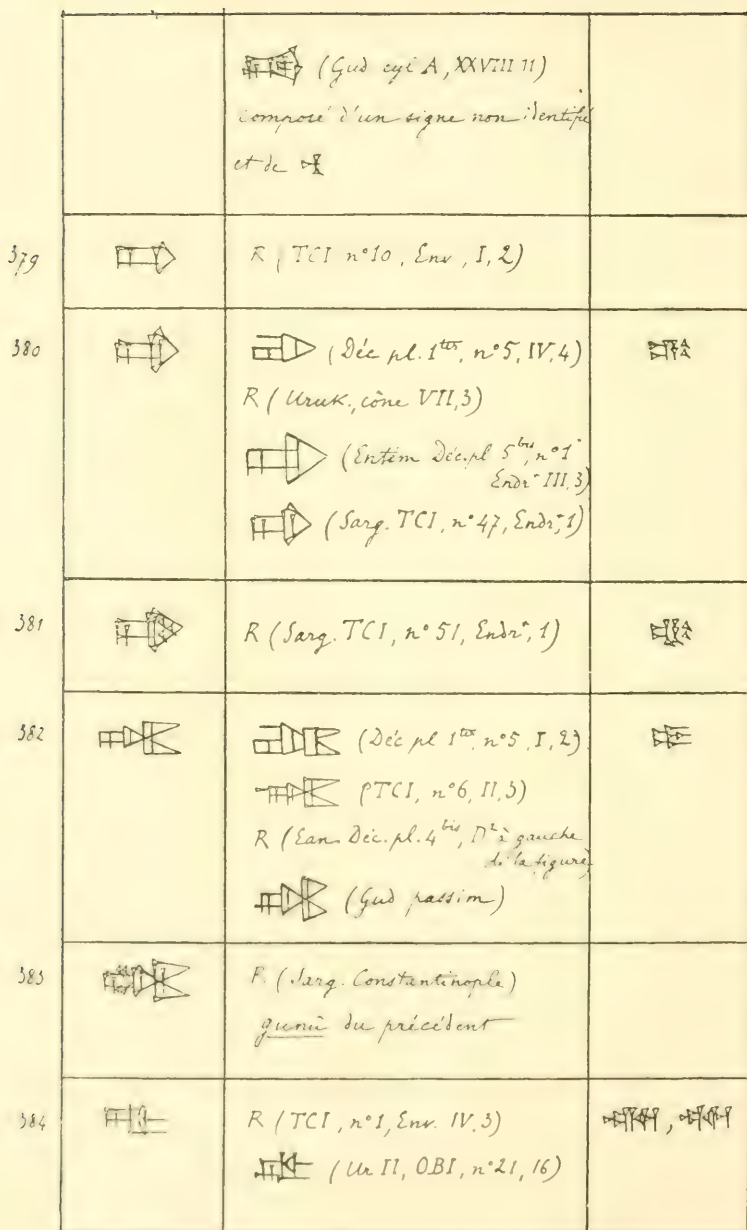 (Gud cyl A, XXVIII 11)
composé d'un signe non identifié
et de
379 R (TCI n°10, Env, I, 2)
380 (Déc pl. 1ter, n°5, IV, 4)
R (Uruk., cône VII, 3)
(Entém Déc. pl 5bis, n°1
Endrt III, 3)
(Sarg. TCI, n°47, Endrt, 1)
381 R (Sarg. TCI, n°51, Endrt, 1)
382 (Déc pl 1ter, n°5, I, 2)
(TCI, n°6, II, 3)
R (Ean. Déc. pl. 4bis, à gauche
de la figure)
(Gud passim)
383 R (Sarg. Constantinople)
gunû du précédent
384 R (TCI, n°1, Env. IV, 3)
(Ur II, OBI, n°21, 16)